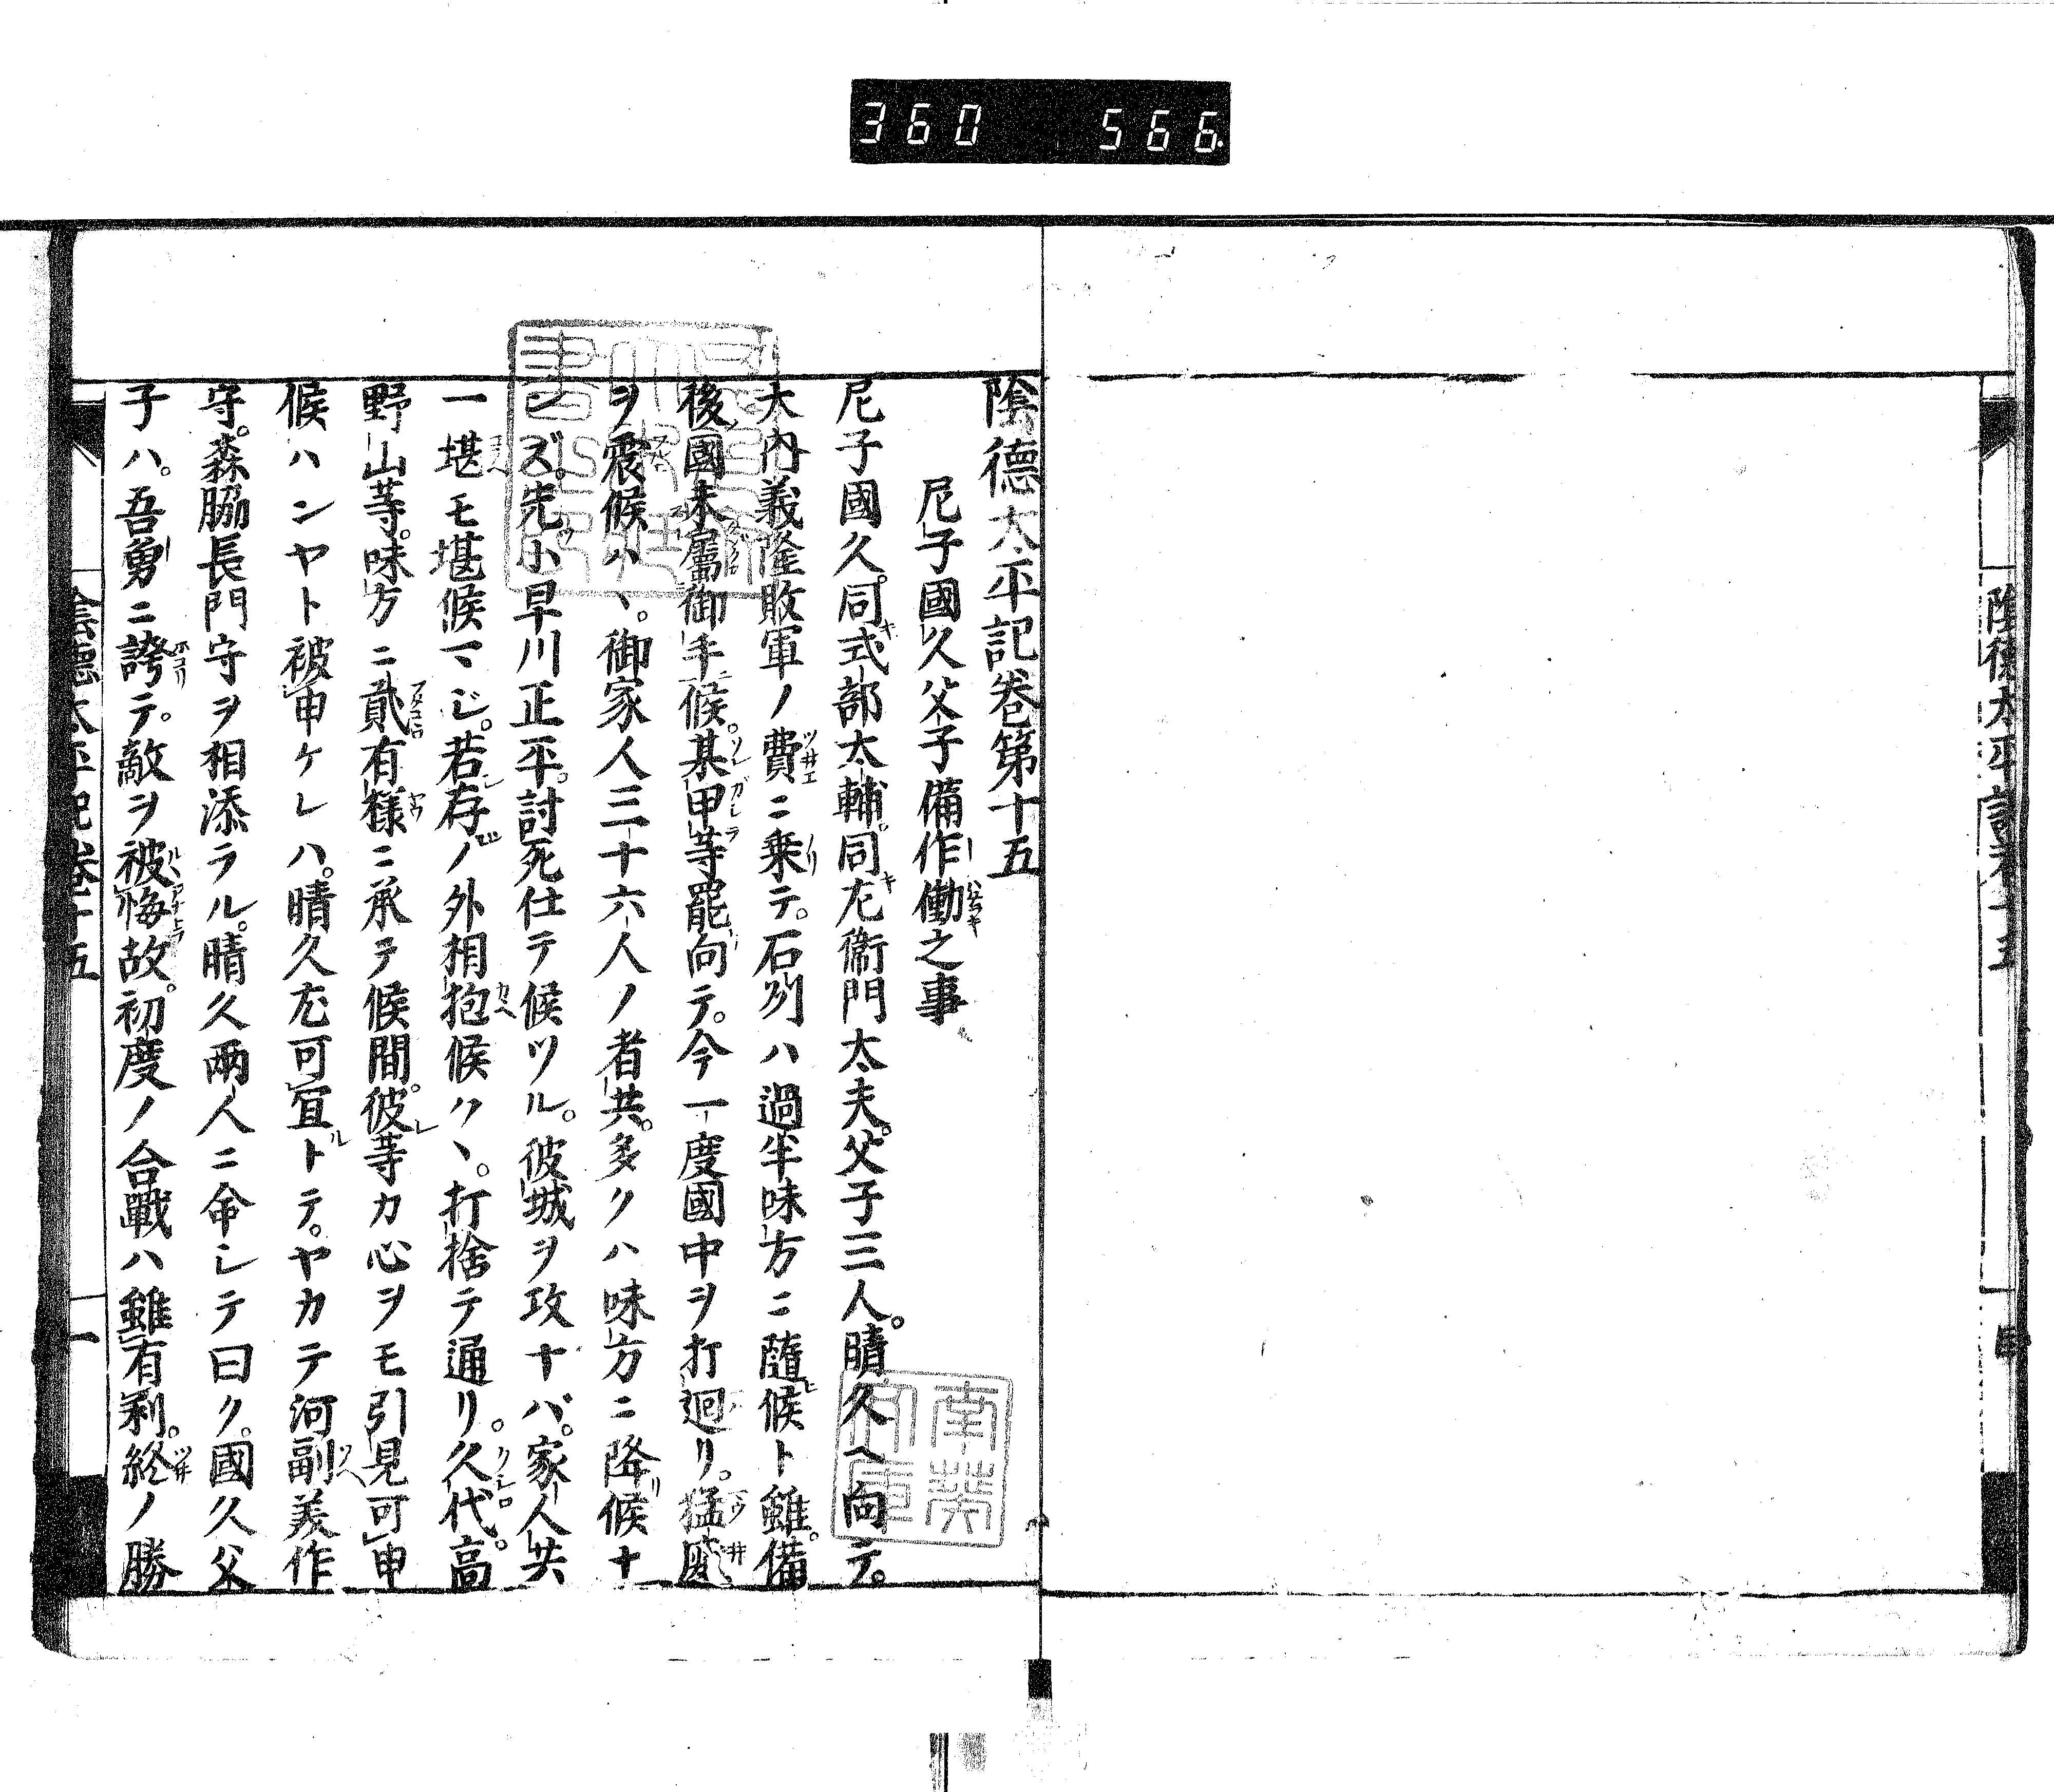 360 566
陰德太平記卷第十五
尼子國久父子備作働之事
尼子國久。同式部太輔。同左衞門太夫。父子三人。晴久へ向テ。
大內義隆敗軍ノ費ニ乗テ。石州ハ過半味方ニ隨候ト雖。備
後國未屬御手候。某甲等罷向テ。今一度國中ヲ打迴リ。猛威
ヲ震候ハヽ。御家人三十六人ノ者共。多クハ味方ニ降候ナ
ンズ。先小早川正平。討死仕テ候ツル。彼城ヲ攻ナバ。家人共
一堪モ堪候マジ。若存ノ外相抱候ハヽ。打捨テ通リ。久代。高
野山等。味方ニ貳有樣ニ承テ候間。彼等カ心ヲモ引見可申
候ハンヤト被申ケレハ。晴久尤可宜トテ。ヤカテ河副美作
守。森脇長門守ヲ相添ラル。晴久兩人ニ命シテ曰ク。國久父
子ハ。吾勇ニ誇テ。敵ヲ被侮故。初度ノ合戰ハ雖有利。終ノ勝
陰德太平記卷十五 一